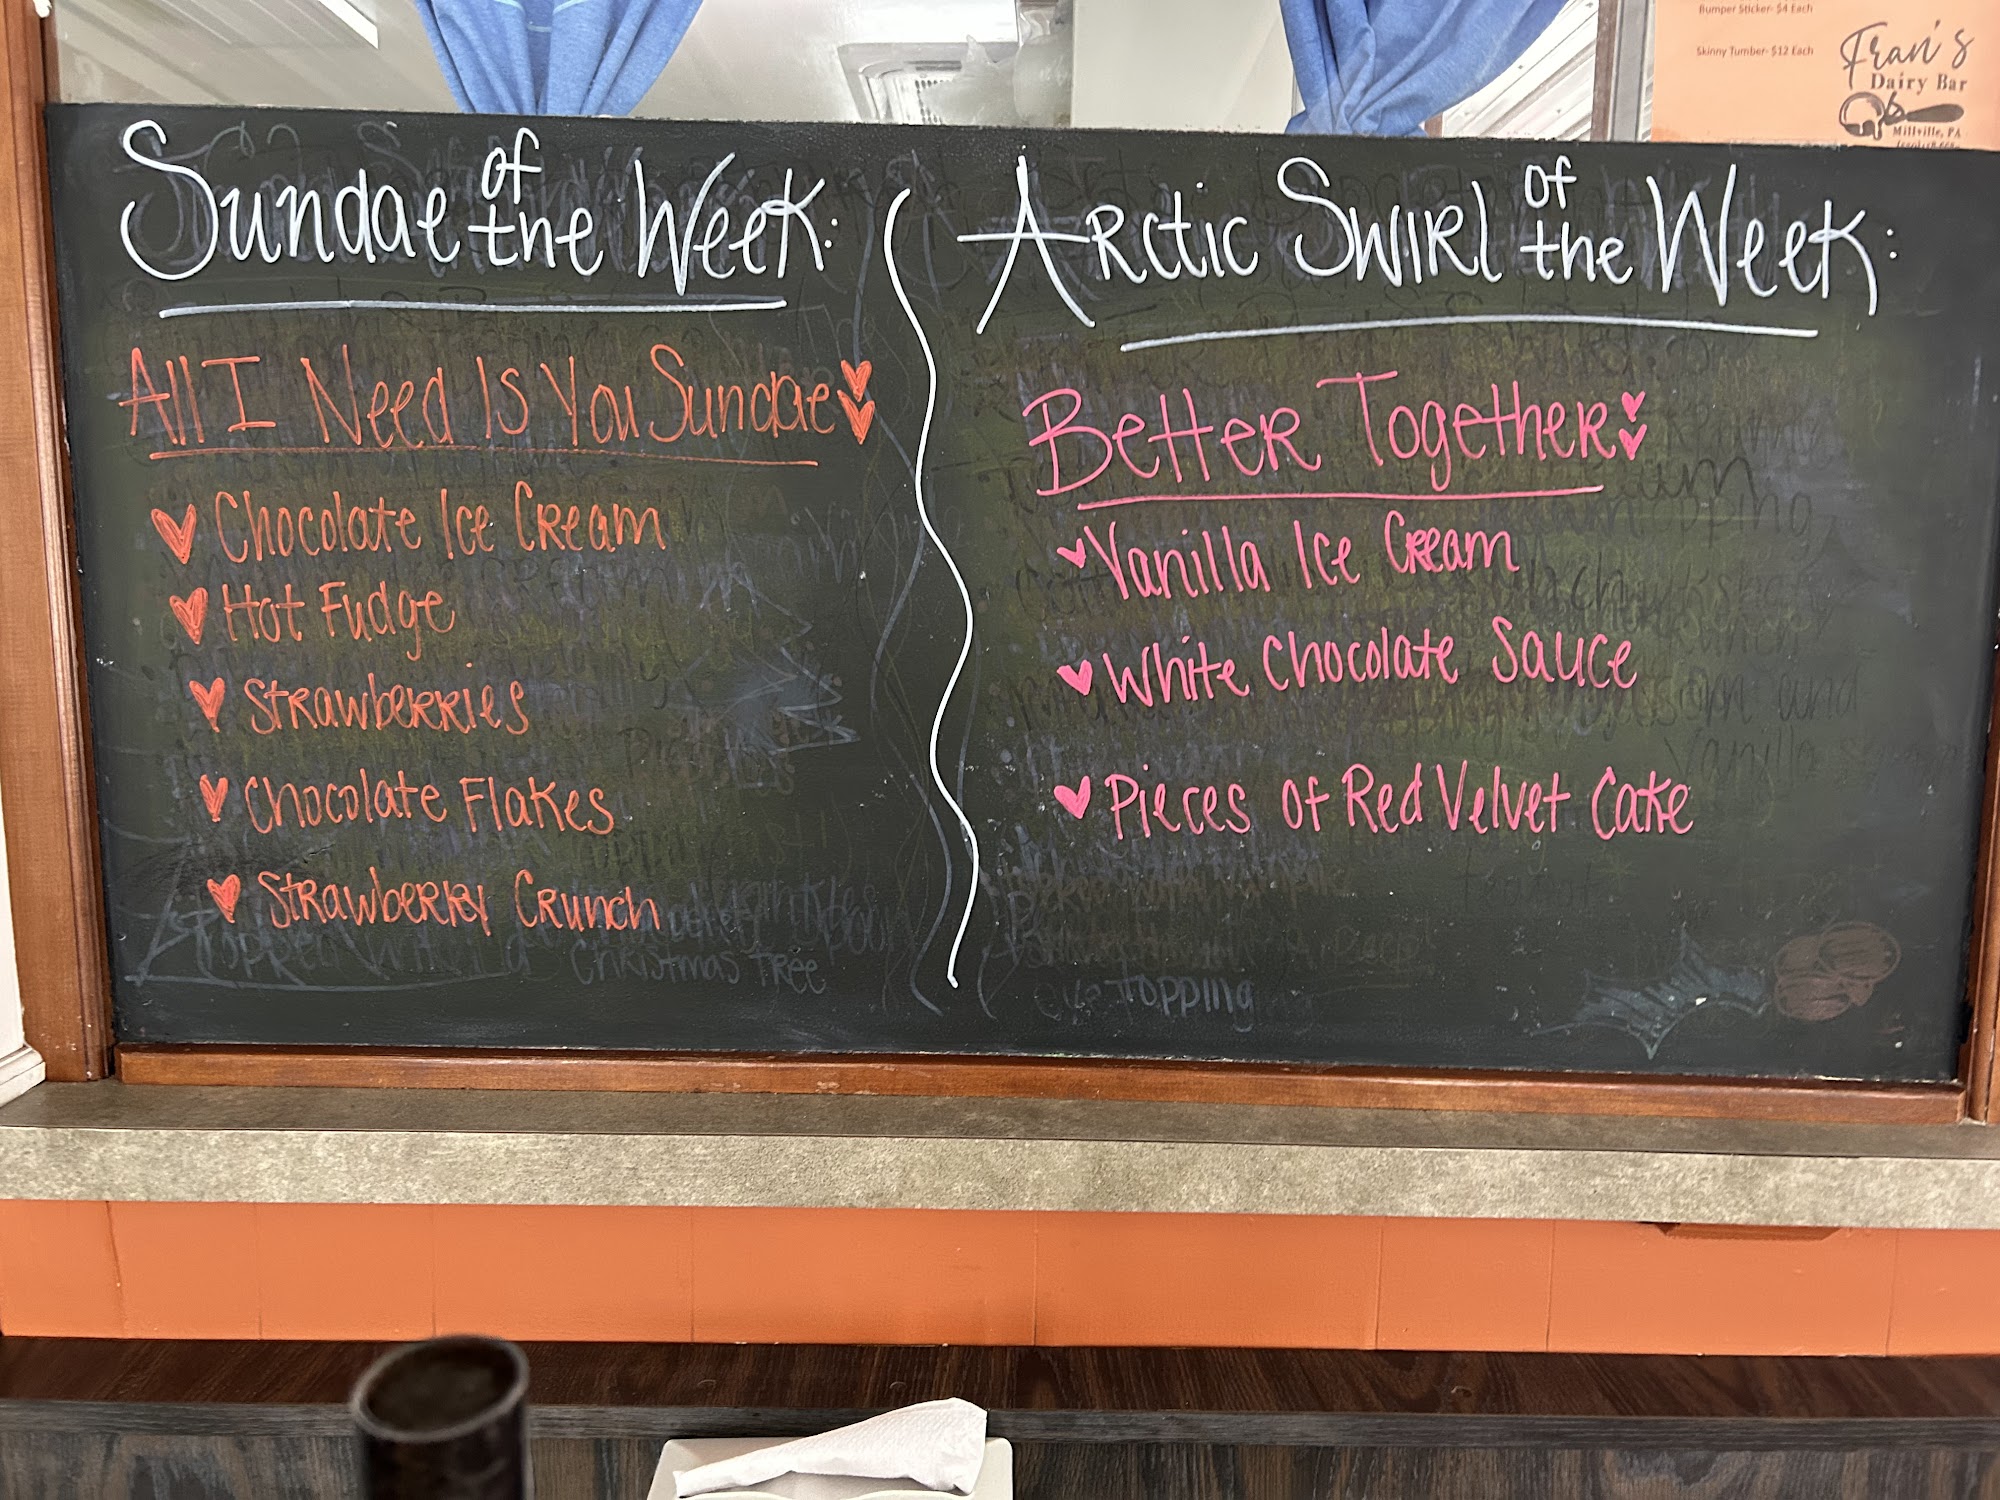 Bumper Sticker- $4 Each
Skinny Tumber- $12 Each
Fran's
Dairy Bar
Millville, PA
Sundae of the Week:
All I Need Is You Sundae
Chocolate Ice Cream
Hot Fudge
Strawberries
Chocolate Flakes
Strawberry Crunch
Topped with
Christmas Tree
Arctic Swirl of the Week:
Better Together
Vanilla Ice Cream
White Chocolate Sauce
Pieces of Red Velvet Cake
topping